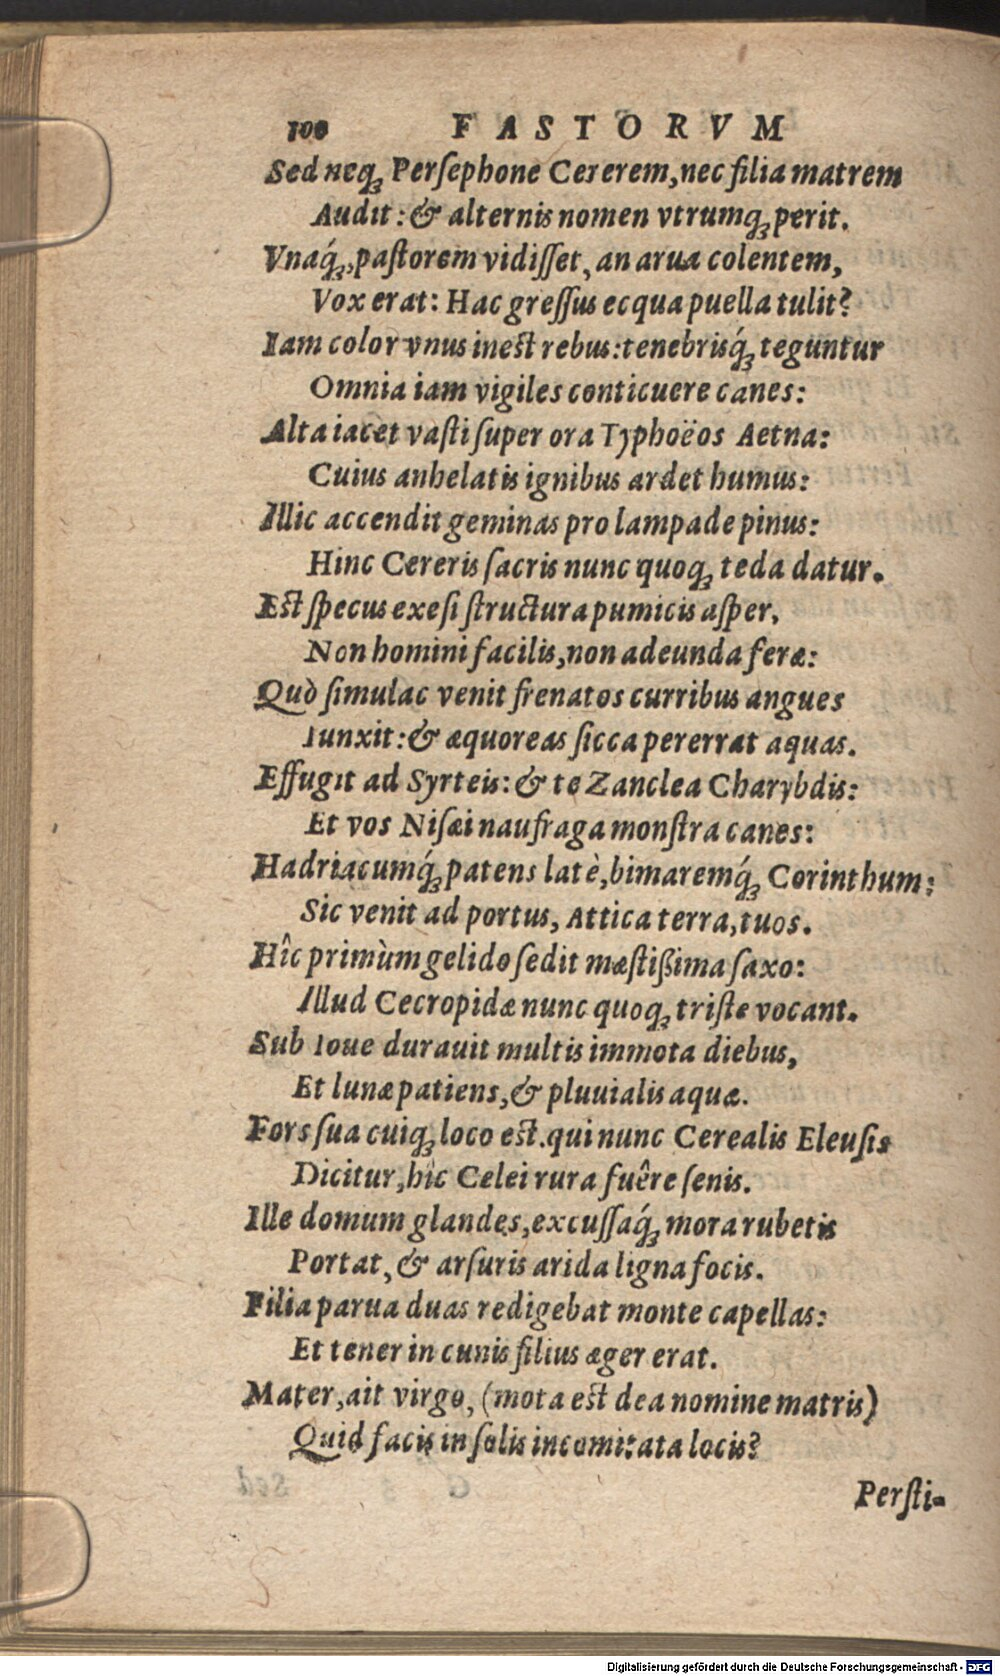 100 FASTORVM
Sed neqꝫ Perſephone Cererem, nec filia matrem
Audit: & alternis nomen vtrumqꝫ perit.
Vnaq́ꝫ, paſtorem vidiſſet, an arua colentem,
Vox erat: Hac greſſus ecqua puella tulit?
Iam color vnus ineſt rebus: tenebrisq́ꝫ teguntur
Omnia iam vigiles conticuere canes:
Alta iacet vaſti ſuper ora Typhoëos Aetna:
Cuius anhelatis ignibus ardet humus:
Illic accendit geminas pro lampade pinus:
Hinc Cereris ſacris nunc quoqꝫ teda datur.
Eſt ſpecus exeſi ſtructura pumicis aſper,
Non homini facilis, non adeunda feræ:
Quò ſimulac venit frenatos curribus angues
Iunxit: & æquoreas ſicca pererrat aquas.
Effugit ad Syrteis: & te Zanclea Charybdis:
Et vos Niſæi naufraga monſtra canes:
Hadriacumq́ꝫ patens latè, bimaremq́ꝫ Corinthum:
Sic venit ad portus, Attica terra, tuos.
Hîc primùm gelido ſedit mæſtißima ſaxo:
Illud Cecropidæ nunc quoqꝫ triſte vocant.
Sub Ioue durauit multis immota diebus,
Et lunæ patiens, & pluuialis aquæ.
Fors ſua cuiqꝫ loco eſt. qui nunc Cerealis Eleuſis
Dicitur, hîc Celei rura fuêre ſenis.
Ille domum glandes, excuſſaq́ꝫ mora rubetis
Portat, & arſuris arida ligna focis.
Filia parua duas redigebat monte capellas:
Et tener in cunis filius æger erat.
Mater, ait virgo, (mota eſt dea nomine matris)
Quid facis in ſolis incomitata locis?
Perſti-
Digitalisierung gefördert durch die Deutsche Forschungsgemeinschaft - DFG